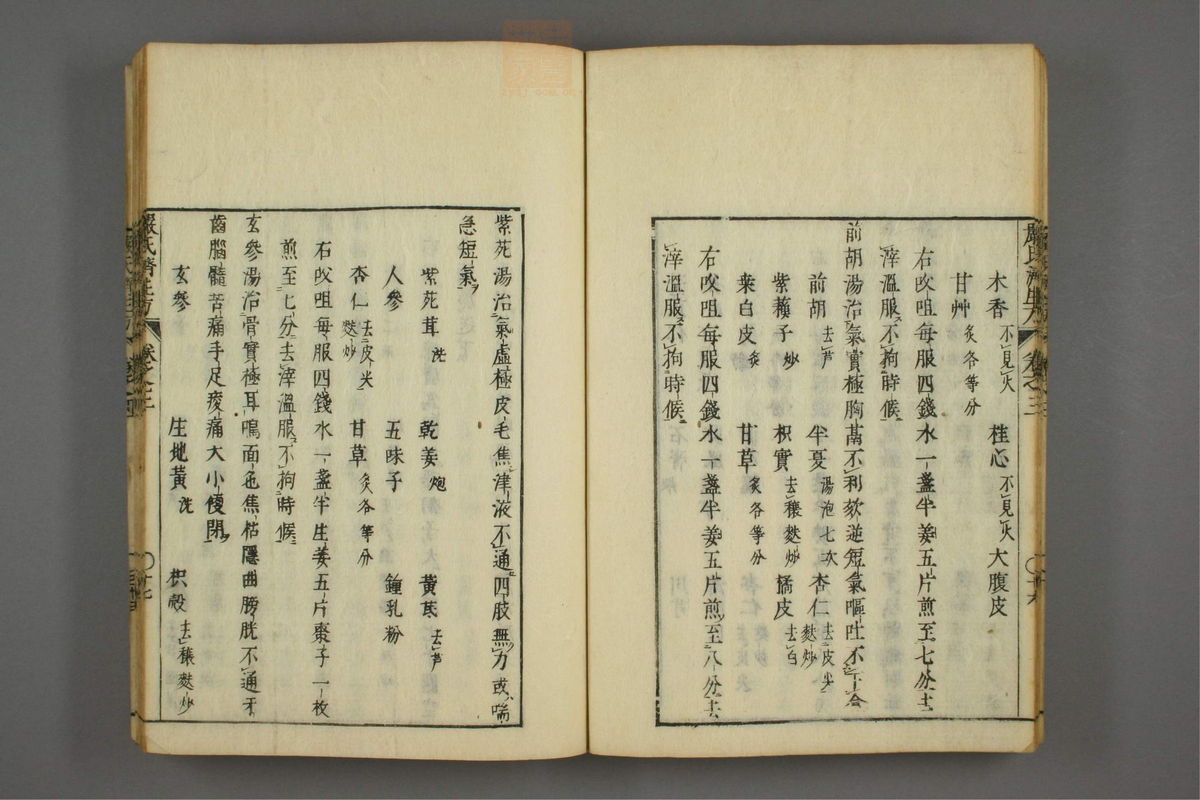 木香 不見火 桂心 不見火 大腹皮
甘艸 炙各等分
右㕮咀每服四錢水一盞半姜五片煎至七分去
滓溫服不拘時候
前胡湯治氣實極胸膈不利欬逆短氣嘔吐不下食
前胡 去芦 半夏 湯泡七次 杏仁 去皮尖麩炒
紫蘓子 炒 枳實 去穰麩炒 橘皮 去白
桒白皮 炙 甘草 炙各等分
右㕮咀每服四錢水一盞半姜五片煎至八分去
滓溫服不拘時候
紫菀湯治氣虛極皮毛焦津液不通四肢無力或喘
急短氣
紫菀茸 洗 乾姜 炮 黃芪 去芦
人參 五味子 鍾乳粉
杏仁 去皮尖麩炒 甘草 炙各等分
右㕮咀每服四錢水一盞半生姜五片棗子一枚
煎至七分去滓溫服不拘時候
玄參湯治骨實極耳鳴面色焦枯隱曲膀胱不通牙
齒腦髓苦痛手足痠痛大小便閉
玄參 生地黃 洗 枳殼 去穰麩炒
嚴氏濟生方 卷之三